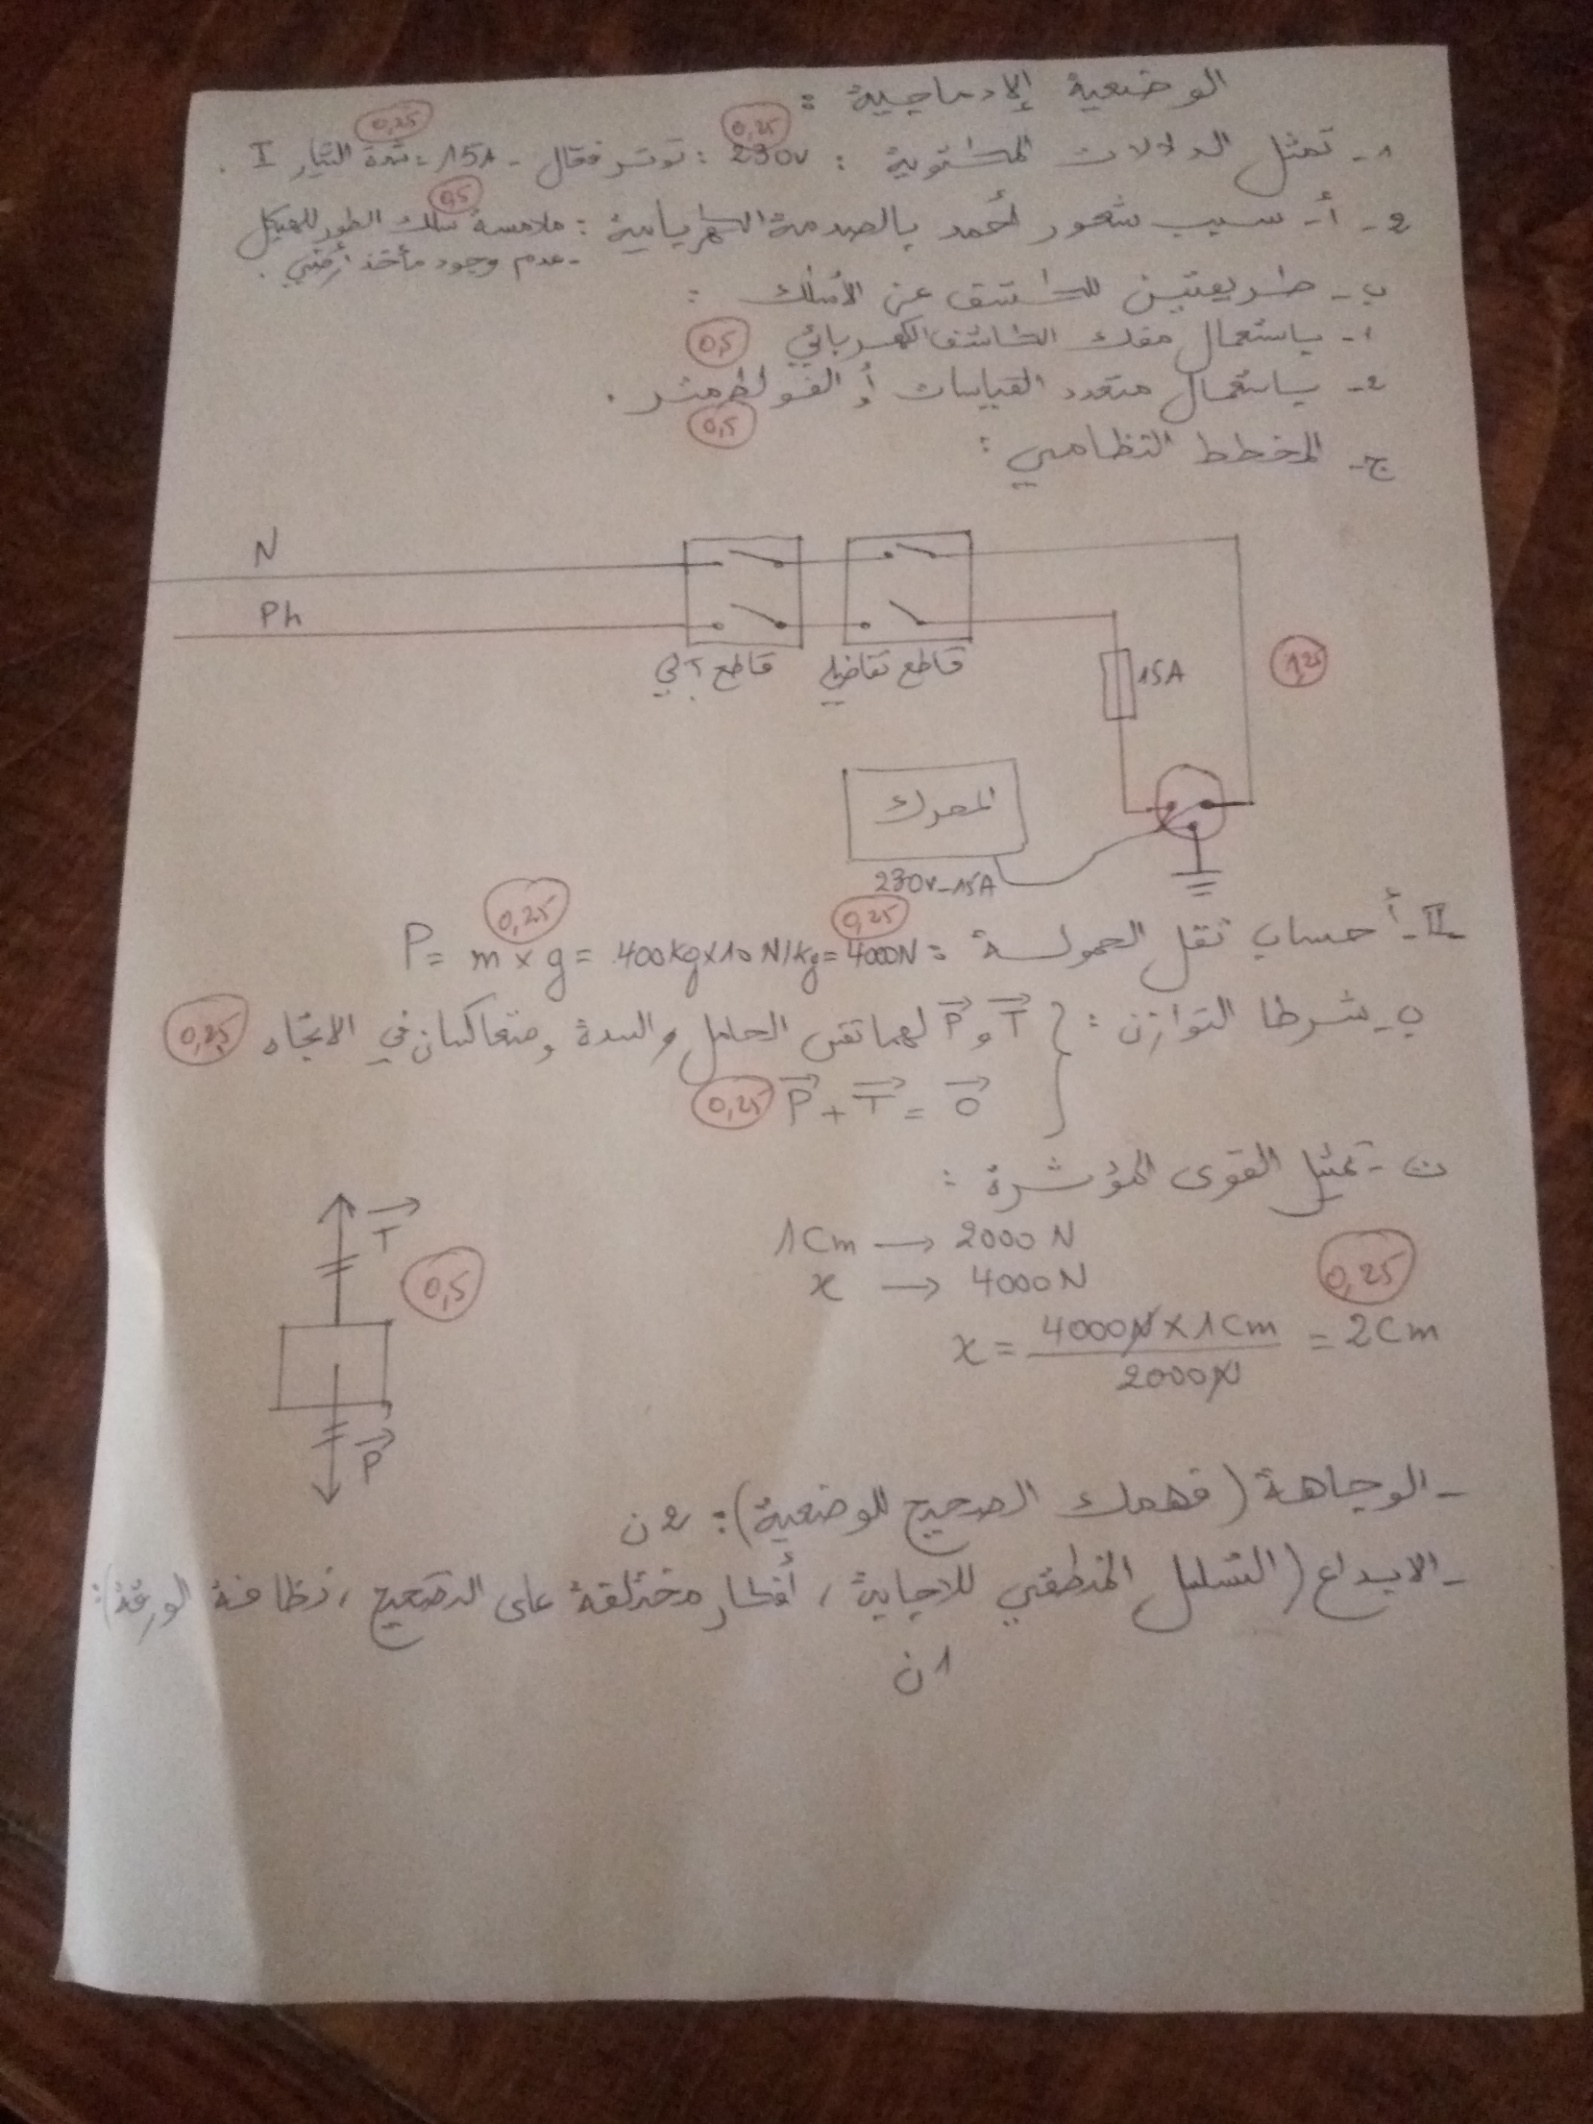 الوضعية الإدماجية :
0,25 0,25
1- تمثل الدلالات المكتوبة : 230v : توتر فعال - 15A : شدة التيار I .
0,5
2- أ- سبب شعور أحمد بالصدمة الكهربائية : ملامسة سلك الطور للهيكل
- عدم وجود مأخذ أرضي .
ب- طريقتين للكشف عن الأسلاك :
1- باستعمال مفك الكاشف الكهربائي 0,5
2- باستعمال متعدد القياسات أو الفولطمتر .
0,5
ج- المخطط النظامي :
N
Ph
قاطع آلي
قاطع تفاضلي
15A
1,25
المحرك
230v-15A
0,25 0,25
II- أ حساب ثقل الحمولة : P = m x g = 400kg x 10 N/kg = 4000N
ب- شرطا التوازن : { T و P لهما نفس الحامل والشدة ومتعاكسان في الاتجاه 0,25
P + T = 0 0,25
ت- تمثيل القوى المؤثرة :
1cm → 2000 N
x → 4000N
0,25
x = 4000N x 1cm / 2000N = 2cm
T
0,5
P
- الوجاهة ( فهمك الصحيح للوضعية ) : 2ن
- الابداع ( التسلسل المنطقي للاجابة ، أفكار مختلفة على التصحيح ، نظافة الورقة ) :
1ن